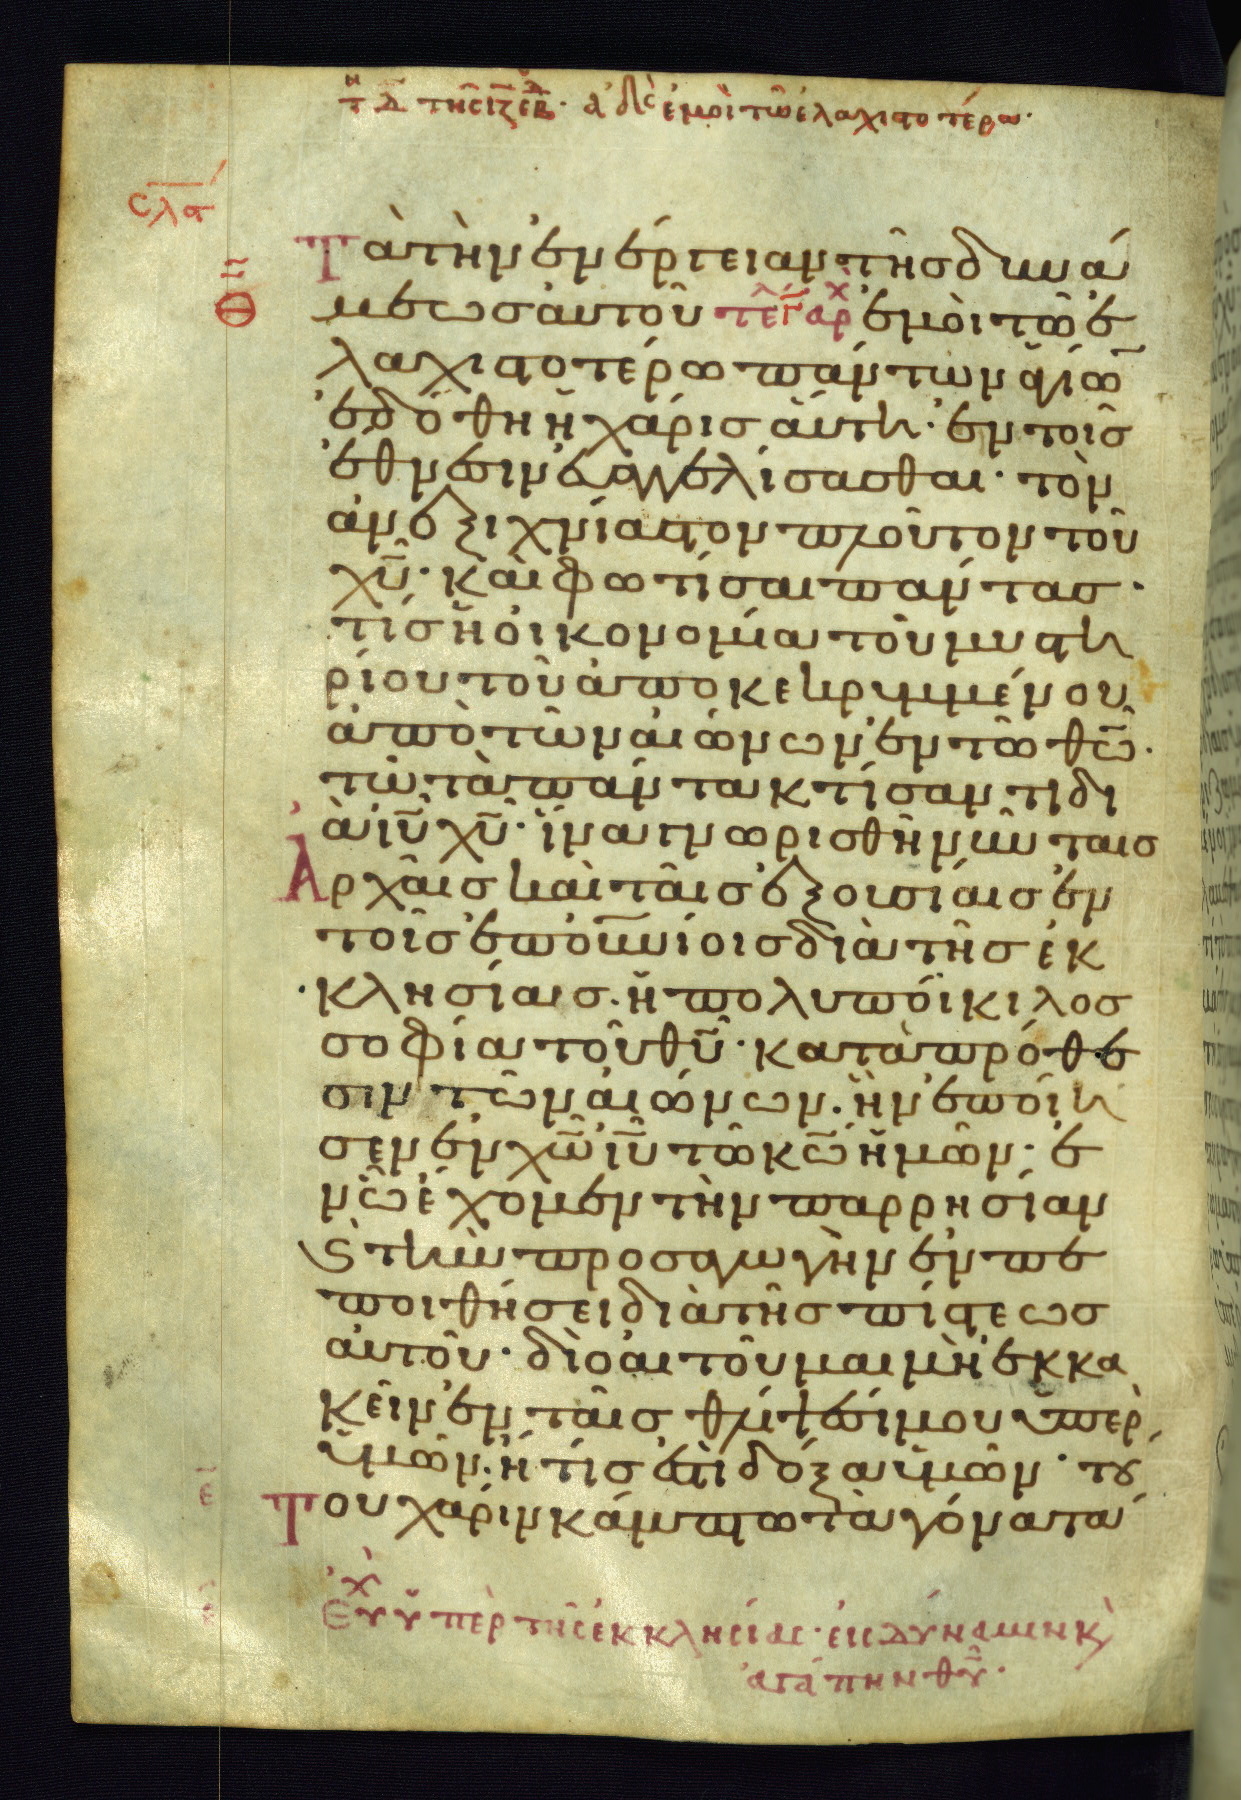 τῇ δ̄ τῆς ιζ ἑβδ· ἀδελφοί ἐμοὶ τῶ ἐλαχιστοτέρω·
σλα
Τὰ τὴν ἐνέργειαν τῆς δυνά
μεως αὐτοῦ τελ αρχ ἐμοὶ τῶ ἐ
λαχιστοτέρω πάντων ἁγίω̄
ἐδόθη ἡ χάρις αὕτη· ἐν τοῖς
ἔθνεσιν εὐαγγελίσασθαι· τὸν
ἀνεξιχνίαστον πλοῦτον τοῦ
χῦ· καὶ φωτίσαι πάντας·
τίς ἡ οἰκονομία τοῦ μυστη
ρίου τοῦ ἀποκεκρυμμένου
ἀπὸ τῶν αἰώνων ἐν τῶ θῶ·
τῶ τὰ πάντα κτίσαντι δι
ὰ ἰῦ χῦ· ἵνα γνωρισθῆ νῦν ταις
Ἀρχαῖς καὶ ταῖς ἐξουσίαις ἐν
τοῖς ἐπουνίοις διὰ τῆς ἐκ
κλησίαις· ἡ πολυποίκιλος
σοφία τοῦ θῦ· κατὰ πρόθε
σιν τῶν αἰώνων· ἣν ἐποίη
σεν ἐν χῶ ἰῦ τῶ κῶ ἡμῶν· ἐ
ν ὧ ἔχομεν τὴν παρρησίαν
ϗ τὴν προσαγωγὴν ἐν πε
ποιθήσει διὰ τῆς πίστεως
αὐτοῦ· διὸ αἰτοῦμαι μὴ ἐκκα
κεῖν ἐν ταῖς θλίψεσί μου ὑπὲρ
ὑμῶν· ἥτις ἐστὶ δόξα ὑμῶν· τού
Του χάριν κάμπτω τὰ γόνατά
ε̄
Ευχ ὑπὲρ τῆς ἐκκλησίας· εἰς δύναμιν κ̀
ἀγάπην θῦ·